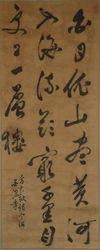 白日依山盡黃河
入海流欲窮千里目
更上一層樓